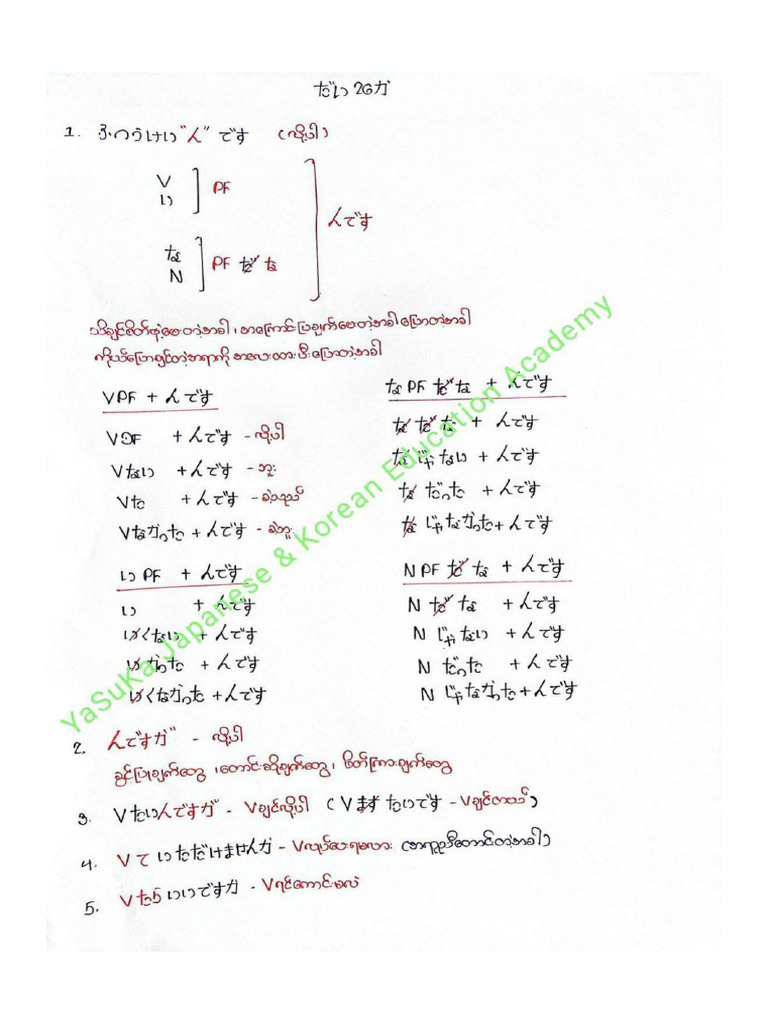 だい 26 か
1. ふつうけい "ん" です (လို့ပါ)
V
い
PF
な
N
PF だ な
んです
သိချင်စိတ်နဲ့မေးတဲ့အခါ ၊ အကြောင်းပြချက်ပေးတဲ့အခါ ပြောတဲ့အခါ
ကိုယ်ပြောချင်တဲ့အရာကို အလေးထားပြီးပြောတဲ့အခါ
V PF + んです
V DF + んです - လို့ပါ
V ない + んです - ဘူး
V た + んです - ခဲ့တယ်
V なかった + んです - ခဲ့ဘူး
い PF + んです
い + んです
いくない + んです
いかった + んです
いくなかった + んです
な PF だ な + んです
な だ な + んです
な じゃ ない + んです
な だった + んです
な じゃなかった + んです
N PF だ な + んです
N だ な + んです
N じゃ ない + んです
N だった + んです
N じゃなかった + んです
2. んですが - လို့ပါ
ခွင့်ပြုချက်တွေ ၊ တောင်းဆိုချက်တွေ ၊ ဖိတ်ကြားချက်တွေ
3. V たいんですが - V ချင်လို့ပါ (V ます たいです - V ချင်တယ်)
4. V て いただけませんか - V လုပ်ပေးရမလား (အကူအညီတောင်းတဲ့အခါ)
5. V たら いいですか - V ရင်ကောင်းမလဲ
YaSuKa Japanese & Korean Education Academy